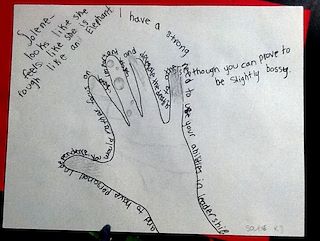 Solene-
looks like she
feels like she is
rough like an Elephant
I have a strong need to use your abilities in leadership
though you can prove to
be slightly bossy.
and to have personal independence. You would rather focus on
and despite the